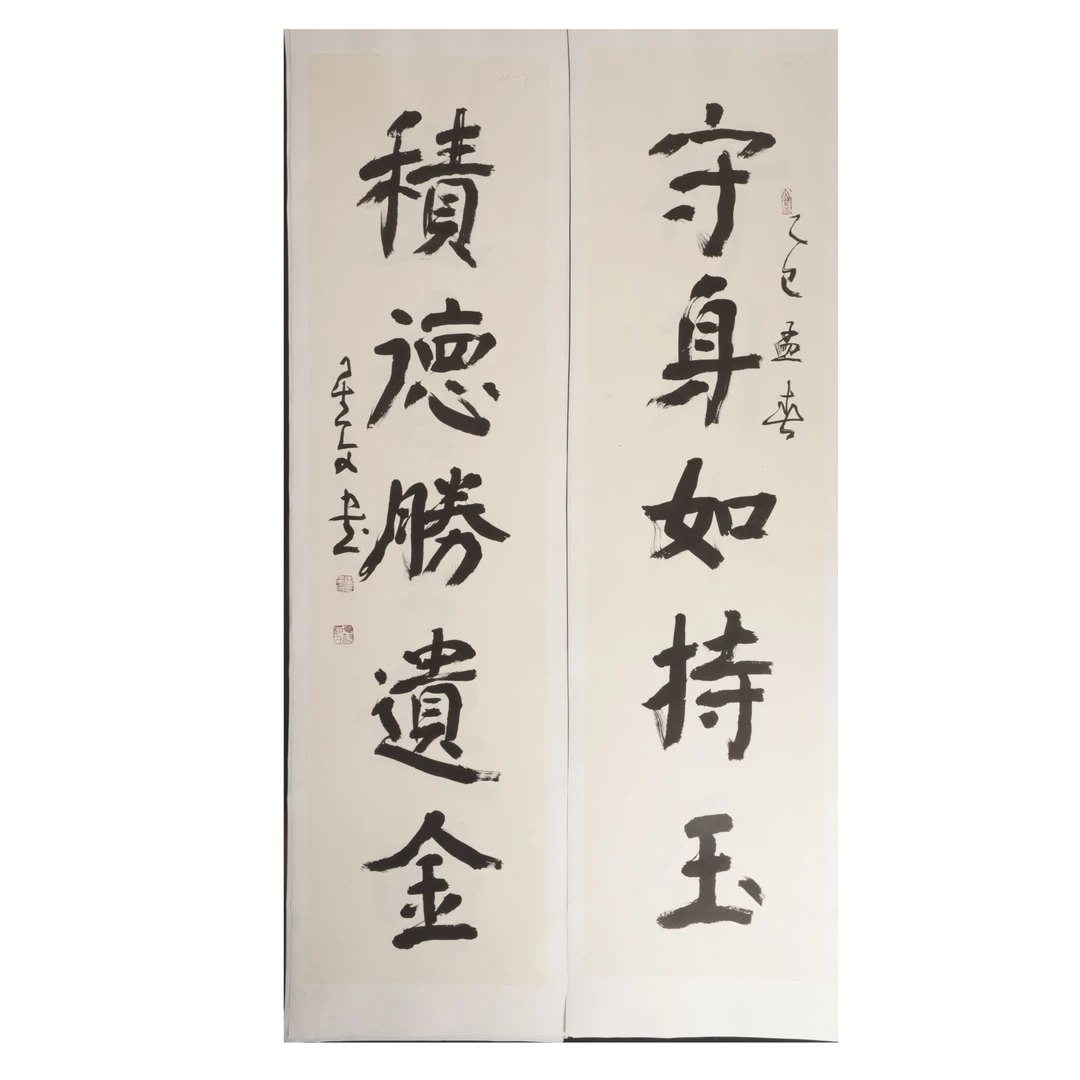 乙巳孟春
守身如持玉
積德勝遺金
文書